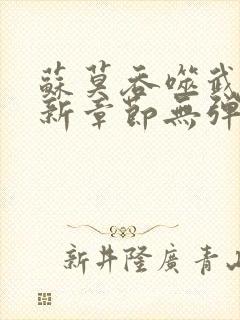 蘇莫吞噬武
新章節無彈
新井隆廣青山